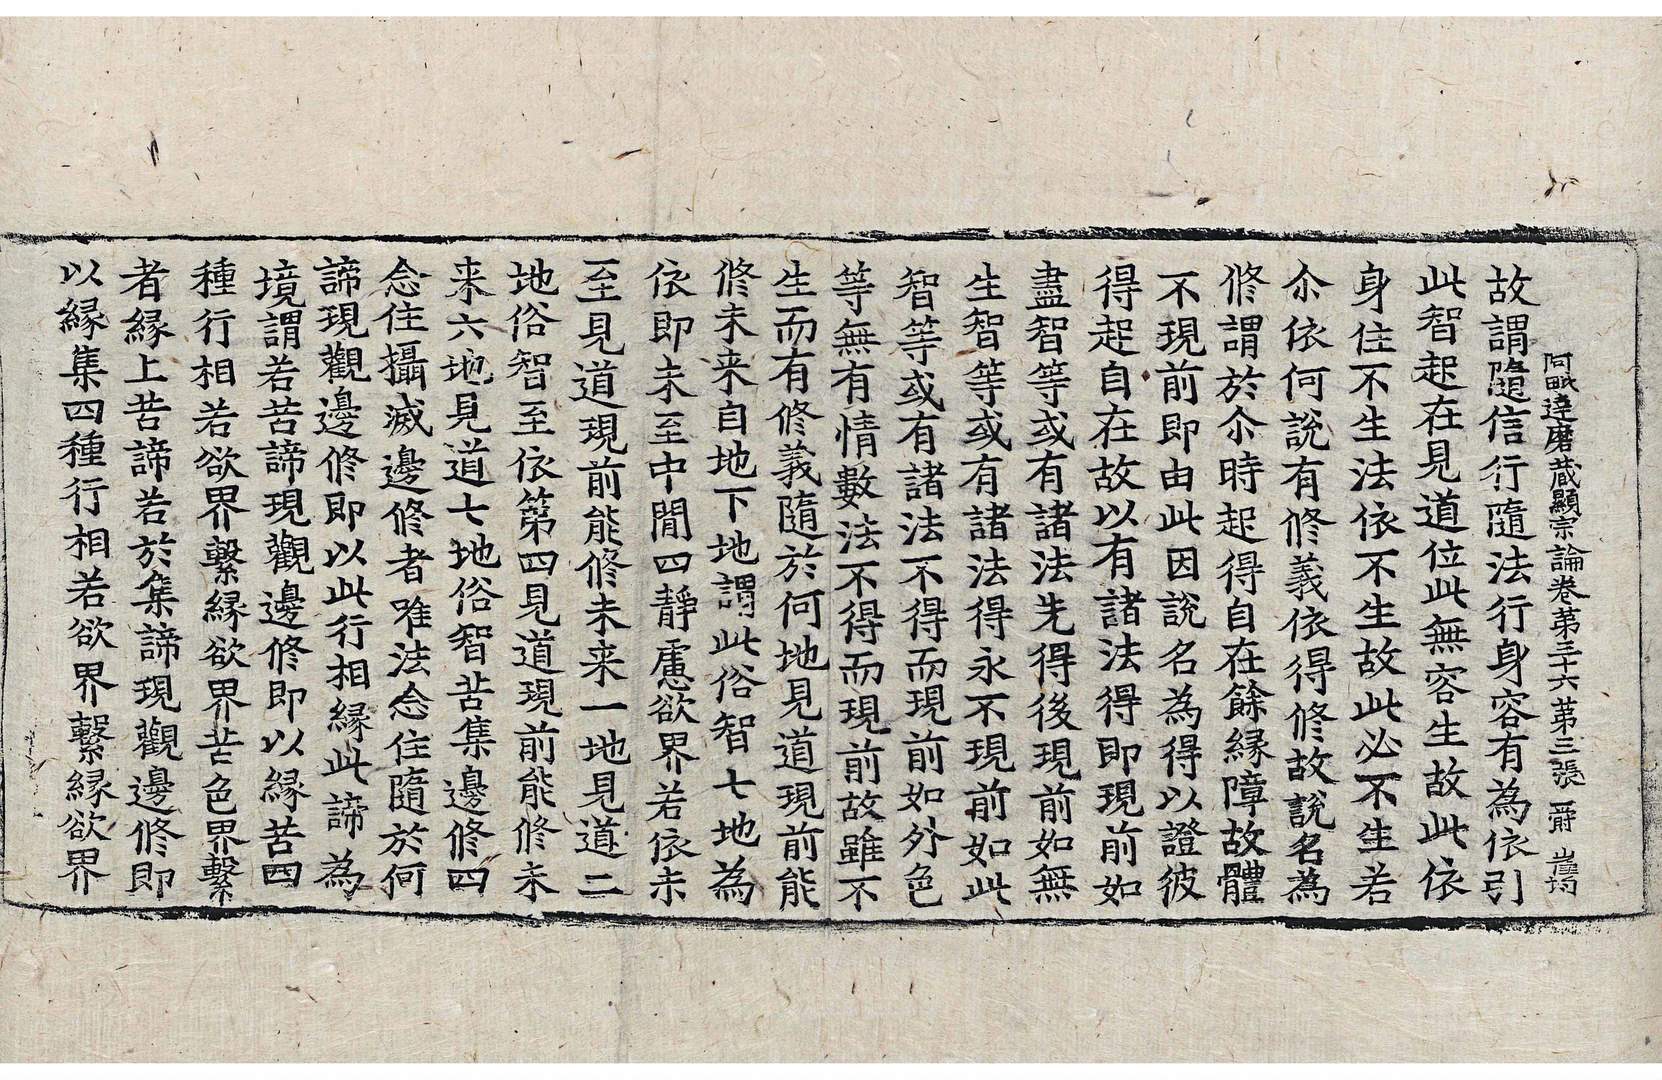 阿毗達磨藏顯宗論卷第三十六第三張 爵
故謂隨信行隨法行身容有為依引
此智起在見道位此無容生故此依
身住不生法依不生故此必不生若
尒依何說有修義依得修故說名為
修謂於尒時起得自在餘緣障故體
不現前即由此因說名為得以證彼
得起自在故以有諸法得即現前如
盡智等或有諸法先得後現前如無
生智等或有諸法得永不現前如此
智等或有諸法不得而現前如外色
等無有情數法不得而現前故雖不
生而有修義隨於何地見道現前能
修未来自地下地謂此俗智七地為
依即未至中間四靜慮欲界若依未
至見道現前能修未来一地見道二
地俗智至依第四見道現前能修未
来六地見道七地俗智苦集邊修四
念住攝滅邊修者唯法念住隨於何
諦現觀邊修即以此行相緣此諦為
境謂若苦諦現觀邊修即以緣苦四
種行相若欲界繫緣欲界苦色界繫
者緣上苦諦若於集諦現觀邊修即
以緣集四種行相若欲界繫緣欲界